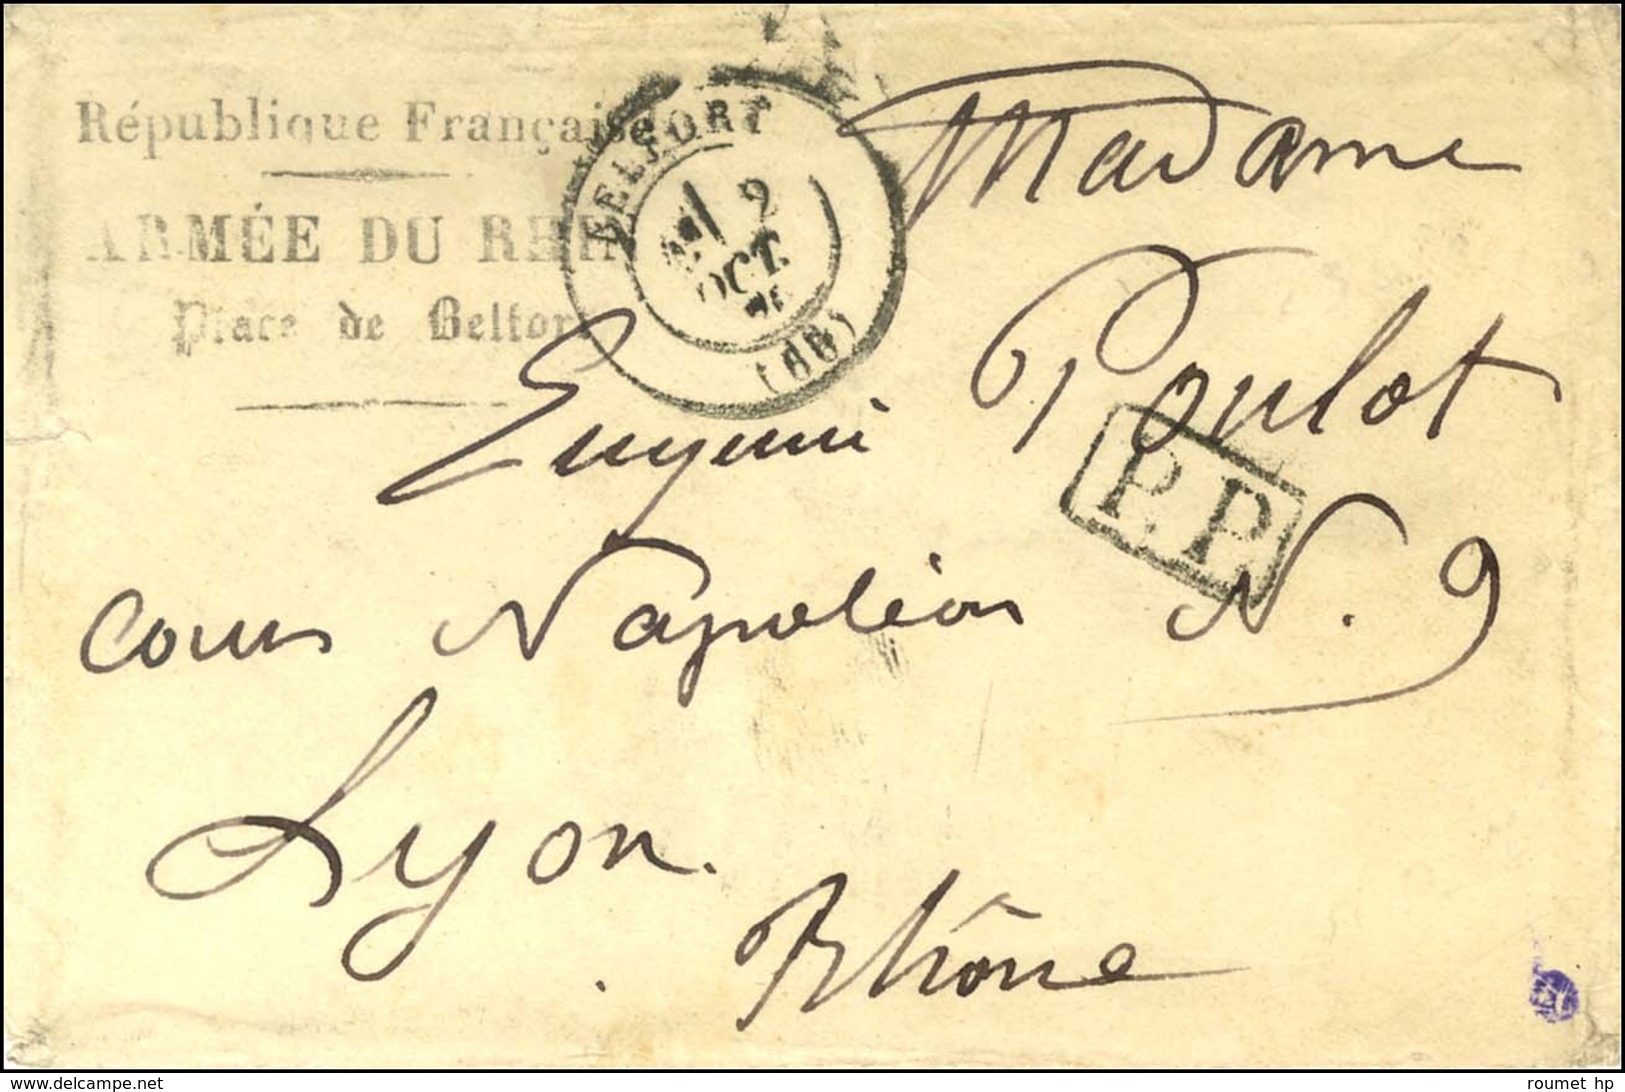 République Française
ARMÉE DU RHIN
Place de Belfort
BELFORT
2
OCT.
70
(66)
Madame
Eugénie Poulot
P.P.
cours Napoléon N. 9
Lyon.
Rhône
www.delcampe.net
roumet hp